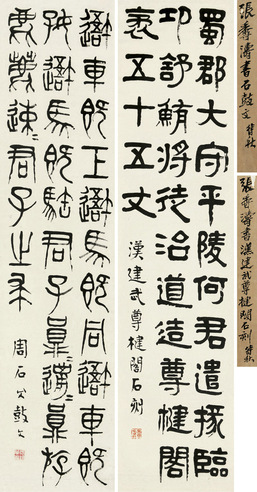 張香濤書石鼓文
張香濤書漢建武尊楗閣石刻
蜀郡大守平陵何君遣掾臨
邛舒鮪將徒治道造尊楗閣
袤五十五丈
漢建武尊楗閣石刻
避車既工避馬既同避車既
好避馬既駐君子員邋員斿
麀鹿速君子之求
周石鼓文